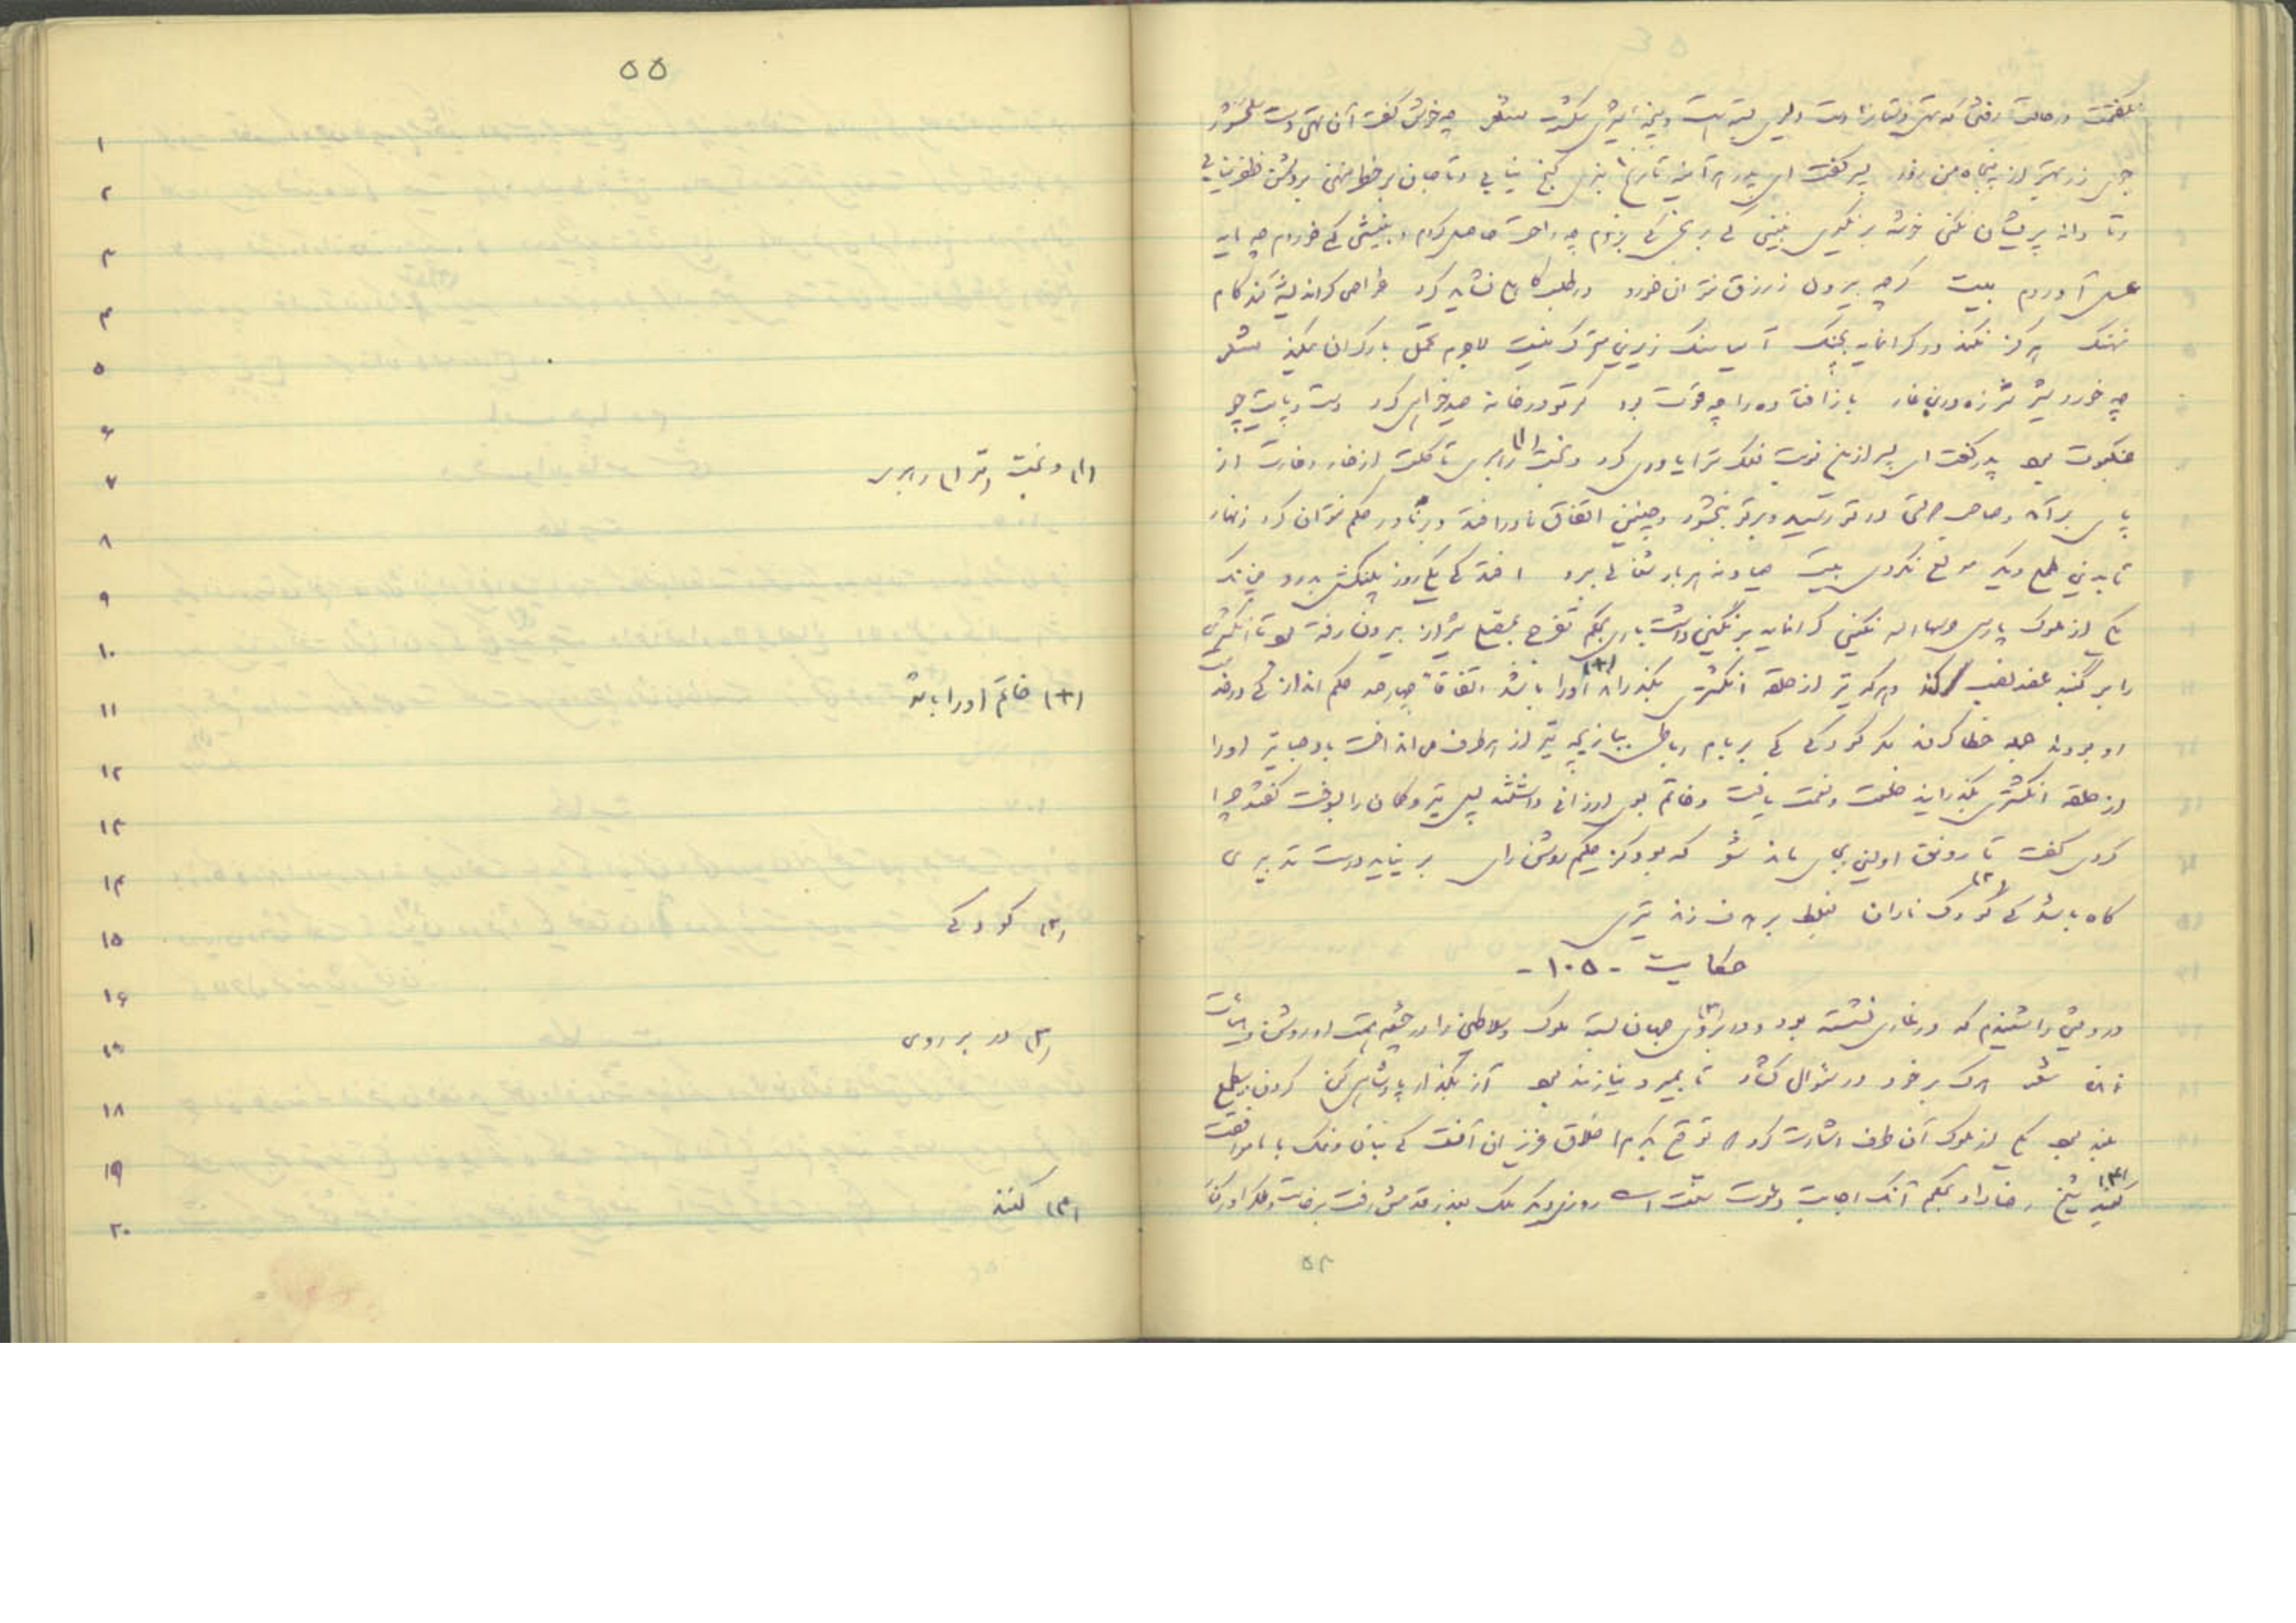 نگفتمت در حالت رفتن که تهی دستان را دست دلیری بسته است و پنجهٔ شیری شکسته شعر چه خوش گفت آن تهی دست سلحشور
جوی زر بهتر از پنجاه من زور پسر گفت ای پدر هرآینه تا رنج نبری گنج نیابی و تا جان بر خطر ننهی بر دشمن ظفر نیابی
و تا دانه پریشان نکنی خرمن بر نگیری نبینی که به رنجی که بردم چه راحت حاصل کردم و بنیشی که خوردم چه مایه
عسل آوردم بیت گرچه بیرون ز رزق نتوان خورد در طلب کاهلی نشاید کرد غواص گر اندیشه کند کام
نهنگ هرگز نکند در گرانمایه بچنگ آسیا سنگ زیرین متحرک نیست لاجرم تحمل بار گران میکند شعر
چه خورد شیر شرزه در بن غار باز افتاده را چه قوت بود گر تو در خانه صید خواهی کرد دست و پایت چو
عنکبوت بود پدر گفت ای پسر ازین نوبت فلک ترا یاوری کرد و بخت (۱) رهبری تا گلت از خار و خارت از
پای برآمد و صاحب دولتی در تو رسید و بر تو ببخشود و چنین اتفاق نادر افتد و بر نادر حکم نتوان کرد زنهار
تا بدین طمع دیگر مولع نگردی بیت صیاد نه هر بار شغالی ببرد افتد که یکی روز پلنگش بدرد چنانکه
یکی از ملوک پارس نگینی گرانمایه بر انگشتری داشت باری بحکم تفرج بمصلی شیراز بیرون رفته بود تا انگشتری
را بر گنبد عضد نصب کنند و هرکه تیر از حلقه انگشتری بگذراند (۲) او را باشد اتفاقا چهارصد حکم انداز که در خدمت
او بودند جمله خطا کردند مگر کودکی که بر بام رباطی ببازیچه تیر از هر طرف می انداخت باد صبا تیر او را
از حلقه انگشتری بگذرانید خلعت و نعمت یافت و خاتم بوی ارزانی داشتند پس تیر و کمان را بسوخت گفتند چرا
کردی گفت تا رونق اولین بجای ماند شعر گه بود کز حکیم روشن رای بر نیاید درست تدبیری
گاه باشد که (۳) کودک نادان بغلط بر هدف زند تیری
حکایت - ۱۰۵ -
درویشی را شنیدم که در غاری نشسته بود و در بروی (۳) جهان بسته ملوک و سلاطین را در چشم همت او روشن و هیأت
نمانده شعر هرکه بر خود در سؤال گشاد تا بمیرد نیازمند بود آز بگذار و پادشاهی کن گردن بی طمع
بلند بود یکی از ملوک آن طرف اشارت کرد که توقع بکرم اخلاق عزیزان آنست که بنان و نمک با ما موافقت
کنند (۴) شیخ رضا داد بحکم آنکه اجابت دعوت سنت است روزی دیگر ملک بعذر قدمش رفت برخاست و ملک را در کنار
۵۴
۵۵
۱
۲
۳
۴
۵
۶
۷ (۱) و بخت (ترا) رهبری
۸
۹
۱۰
۱۱ (۲) خاتم او را باشد
۱۲
۱۳
۱۴
۱۵ (۳) کودکی
۱۶
۱۷ (۳) در بر روی
۱۸
۱۹
۲۰ (۴) کنند